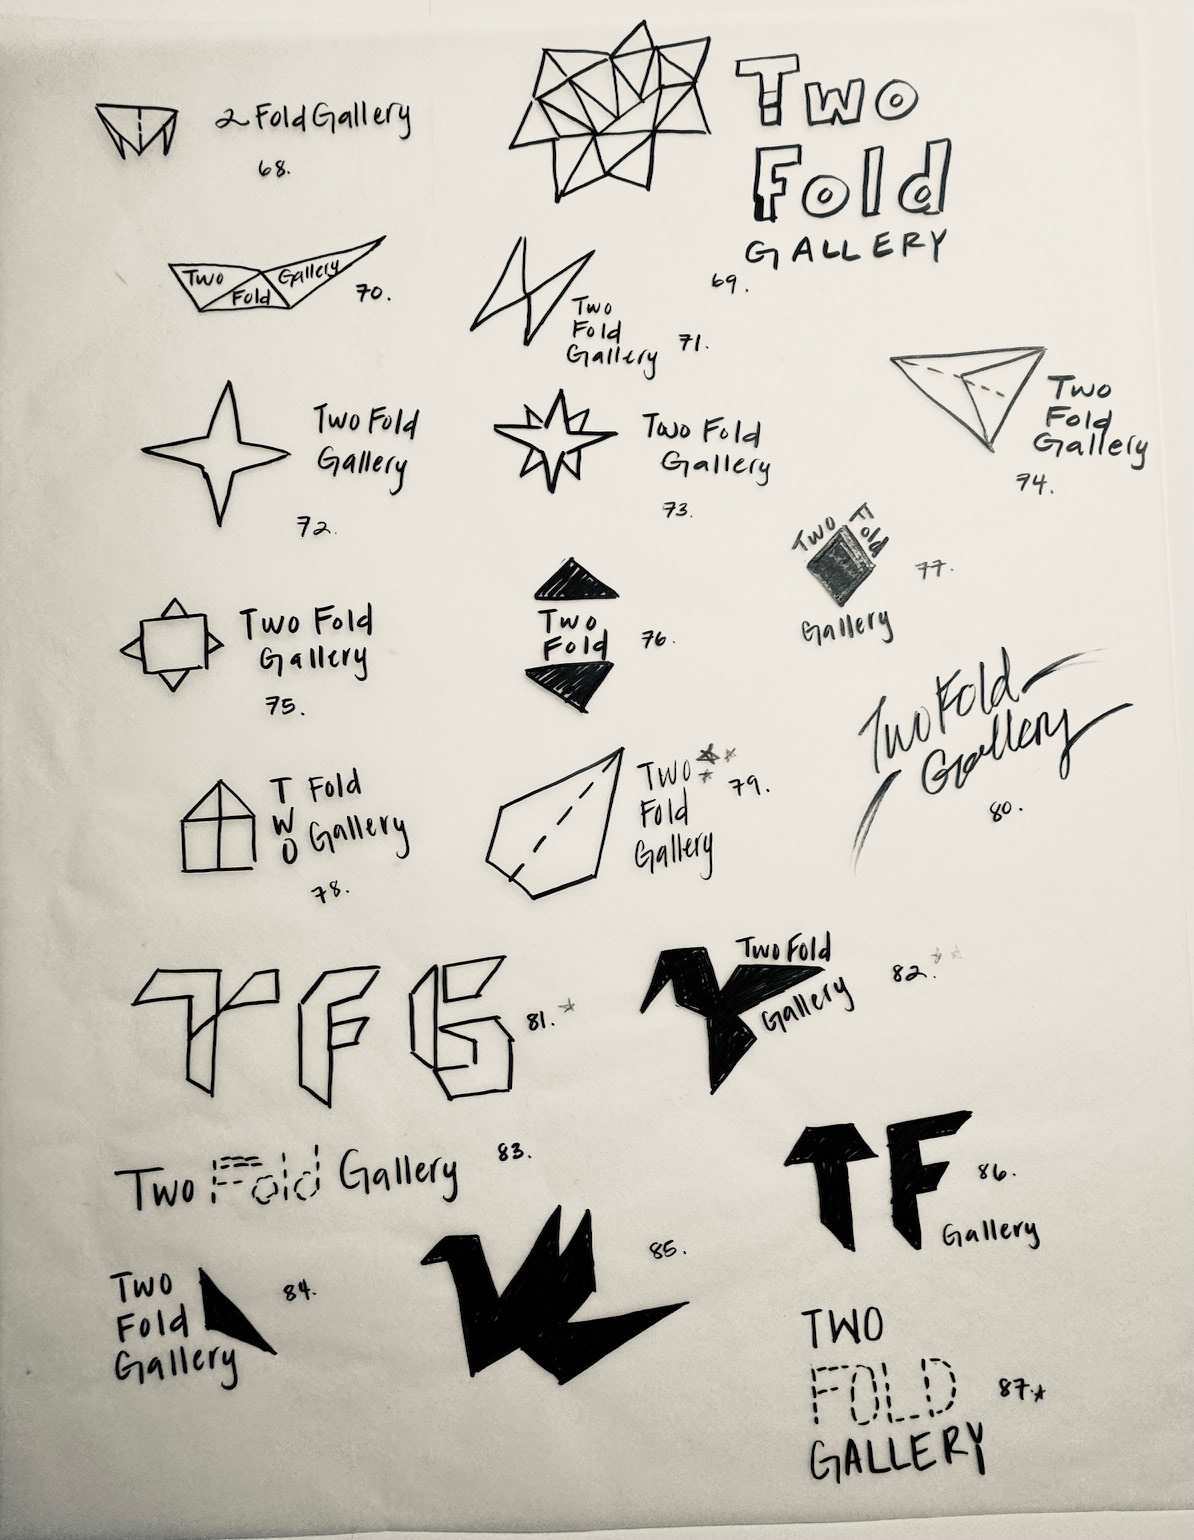 2 Fold Gallery
68.
Two
Fold
GALLERY
69.
Two
Fold
Gallery
70.
Two
Fold
Gallery
71.
Two Fold
Gallery
72.
Two Fold
Gallery
73.
Two
Fold
Gallery
74.
Two Fold
Gallery
75.
Two
Fold
76.
Two
Fold
Gallery
77.
TWO
Fold
Gallery
78.
Two
Fold
Gallery
79.
Two Fold
Gallery
80.
TFG
81.
Two Fold
Gallery
82.
Two Fold Gallery
83.
Two
Fold
Gallery
84.
85.
TF
Gallery
86.
TWO
FOLD
GALLERY
87.